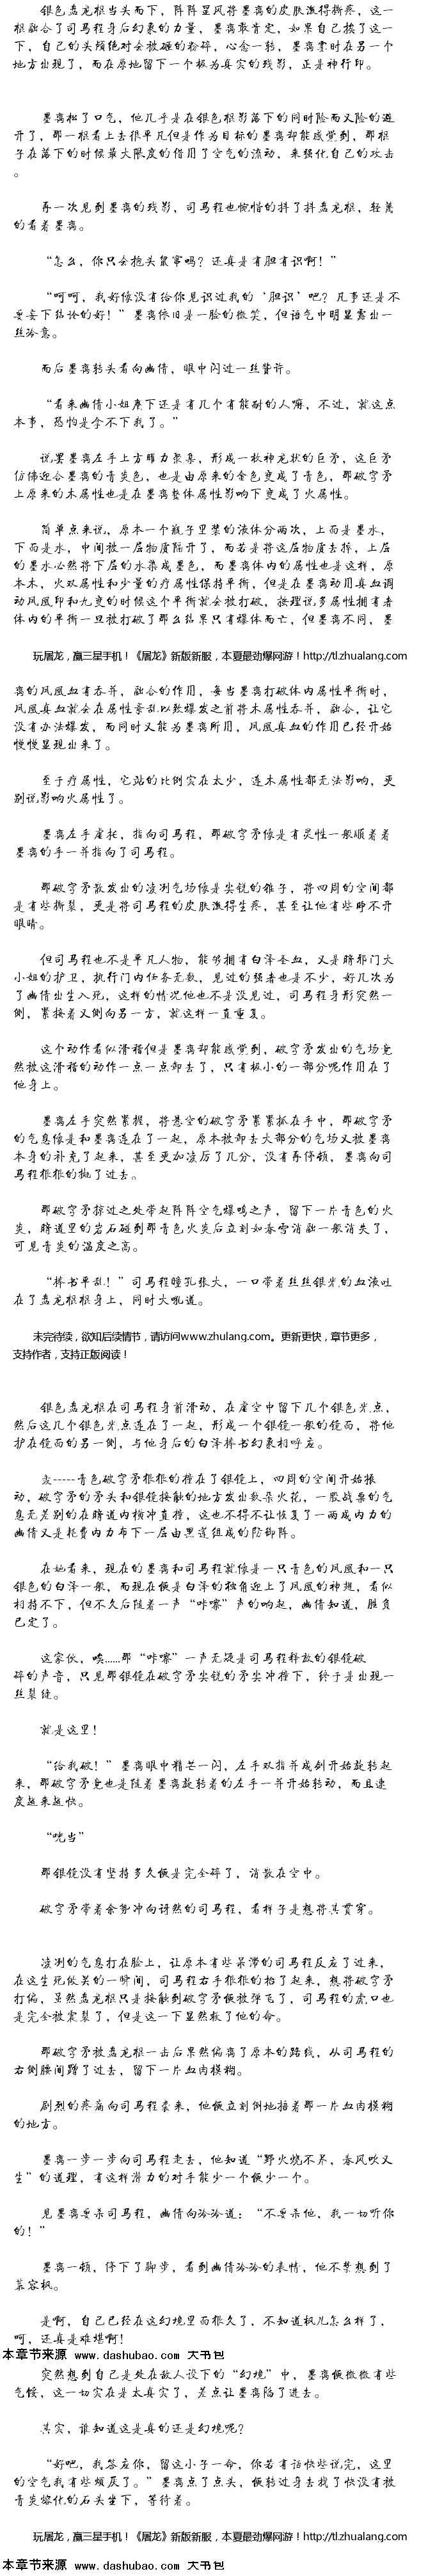 银色盘龙棍当头而下，阵阵罡风将墨离的皮肤激得撕疼，这一
棍融合了司马程身后幻象的力量，墨离敢肯定，如果自己挨了这一
下，自己的头颅绝对会被砸的粉碎，心念一转，墨离霎时在另一个
地方出现了，而在原地留下一个极为真实的残影，正是神行印。
墨离松了口气，他几乎是在银色棍影落下的同时险而又险的避
开了，那一棍看上去很平凡但是作为目标的墨离却能感觉到，那棍
子在落下的时候最大限度的借用了空气的流动，来强化自己的攻击
。
再一次见到墨离的残影，司马程也惋惜的抖了抖盘龙棍，轻蔑
的看着墨离。
“怎么，你只会抱头鼠窜吗？还真是有胆有识啊！”
“呵呵，我好像没有给你见识过我的‘胆识’吧？凡事还是不
要妄下结论的好！”墨离依旧是一脸的微笑，但语气中明显露出一
丝冷意。
而后墨离转头看向幽倩，眼中闪过一丝赞许。
“看来幽倩小姐座下还是有几个有能耐的人嘛，不过，就这点
本事，恐怕是拿不下我了。”
说罢墨离左手上方雕力聚集，形成一枚神龙状的巨矛，这巨矛
仿佛迎合墨离的青炎色，也是由原来的金色变成了青色，那破穹矛
上原来的木属性也是在墨离整体属性影响下变成了火属性。
简单点来说，原本一个瓶子里装的液体分两次，上面是墨水，
下面是水，中间被一层物质隔开了，而若是将这层物质去掉，上层
的墨水必然将下层的水染成墨色，而墨离体内的属性也是这样，原
本木，火双属性和少量的疗属性保持平衡，但是在墨离动用真血调
动凤凰印和九变的时候这个平衡就会被打破，按理说多属性拥有者
体内的平衡一旦被打破了那么结果只有爆体而亡，但墨离不同，墨
玩屠龙，赢三星手机！《屠龙》新版新服，本夏最劲爆网游！http://tl.zhualang.com
离的凤凰血有吞并，融合的作用，每当墨离打破体内属性平衡时，
凤凰真血就会在属性紊乱以致爆发之前将木属性吞并，融合，让它
没有办法爆发，而同时又能为墨离所用，凤凰真血的作用已经开始
慢慢显现出来了。
至于疗属性，它站的比例实在太少，连木属性都无法影响，更
别说影响火属性了。
墨离左手虚托，指向司马程，那破穹矛像是有灵性一般顺着着
墨离的手一并指向了司马程。
那破穹矛散发出的凌冽气场像是尖锐的锥子，将四周的空间都
是有些撕裂，更是将司马程的皮肤激得生疼，甚至让他有些睁不开
眼睛。
但司马程也不是平凡人物，能够拥有白泽圣血，又是暗邪门大
小姐的护卫，执行门内任务无数，见过的强者也是不少，好几次为
了幽倩出生入死，这样的情况他也不是没见过，司马程身形突然一
侧，紧接着又侧向另一方，就这样一直重复。
这个动作看似滑稽但是墨离却能感觉到，破穹矛发出的气场竟
然被这滑稽的动作一点一点卸去了，只有极小的一部分呢作用在了
他身上。
墨离左手突然紧握，将悬空的破穹矛紧紧抓在手中，那破穹矛
的气息像是和墨离连在了一起，原本被卸去大部分的气场又被墨离
本身的补充了起来，甚至更加凌厉了几分，没有再停顿，墨离向司
马程狠狠的抛了过去。
那破穹矛掠过之处带起阵阵空气爆鸣之声，留下一片青色的火
炎，暗道里的岩石碰到那青色火炎后立刻如春雪消融一般消失了，
可见青炎的温度之高。
“棒书单乱！”司马程瞳孔张大，一口带着丝丝银光的血液吐
在了盘龙棍棍身上，同时大吼道。
未完待续，欲知后续情节，请访问www.zhulang.com。更新更快，章节更多，
支持作者，支持正版阅读！
银色盘龙棍在司马程身前滑动，在虚空中留下几个银色光点，
然后这几个银色光点连在了一起，形成一个银镜一般的镜面，将他
护在镜面的另一侧，与他身后的白泽棒书幻象相呼应。
轰-----青色破穹矛狠狠的撞在了银镜上，四周的空间开始振
动，破穹矛的矛头和银镜接触的地方发出数朵火花，一股战票的气
息无差别的在暗道内横冲直撞，这也不得不让恢复了一两成内力的
幽倩又是耗费内力布下一层由黑莲组成的防御阵。
在她看来，现在的墨离和司马程就像是一只青色的凤凰和一只
银色的白泽一般，而现在便是白泽的独角迎上了凤凰的神翅，看似
相持不下，但不久后随着一声“咔嚓”声的响起，幽倩知道，胜负
已定了。
这家伙，唉......那“咔嚓”一声无疑是司马程释放的银镜破
碎的声音，只见那银镜在破穹矛尖锐的矛尖冲撞下，终于是出现一
丝裂缝。
就是这里！
“给我破！”墨离眼中精芒一闪，左手双指并成剑开始旋转起
来，那破穹矛竟也是随着墨离旋转着的左手一并开始转动，而且速
度越来越快。
“咣当”
那银镜没有坚持多久便是完全碎了，消散在空中。
破穹矛带着余势冲向讶然的司马程，看样子是想将其贯穿。
凌冽的气息打在脸上，让原本有些呆滞的司马程反应了过来，
在这生死攸关的一瞬间，司马程右手狠狠的抬了起来，想将破穹矛
打偏，虽然盘龙棍只是接触到破穹矛便被弹飞了，司马程的虎口也
是完全被震裂了，但是这一下显然救了他的命。
那破穹矛被盘龙棍一击后果然偏离了原本的路线，从司马程的
右侧腰间蹭了过去，留下一片血肉模糊。
剧烈的疼痛向司马程袭来，他便立刻倒地捂着那一片血肉模糊
的地方。
墨离一步一步向司马程走去，他知道“野火烧不尽，春风吹又
生”的道理，有这样潜力的对手能少一个便少一个。
见墨离要杀司马程，幽倩向冷冷道：“不要杀他，我一切听你
的！”
墨离一顿，停下了脚步，看到幽倩冷冷的表情，他不禁想到了
慕容枫。
是啊，自己已经在这幻境里面很久了，不知道枫儿怎么样了，
呵，还真是难堪啊！
本章节来源 www.dashubao.com 大书包
突然想到自己是处在敌人设下的“幻境”中，墨离便微微有些
气馁，这一切实在是太真实了，差点让墨离陷了进去。
其实，谁知道这是真的还是幻境呢？
“好吧，我答应你，留这小子一命，你若有话快些说完，这里
的空气我有些烦厌了。”墨离点了点头，便转过身去找了快没有被
青炎熔化的石头坐下，等待着。
玩屠龙，赢三星手机！《屠龙》新版新服，本夏最劲爆网游！http://tl.zhualang.com
本章节来源 www.dashubao.com 大书包